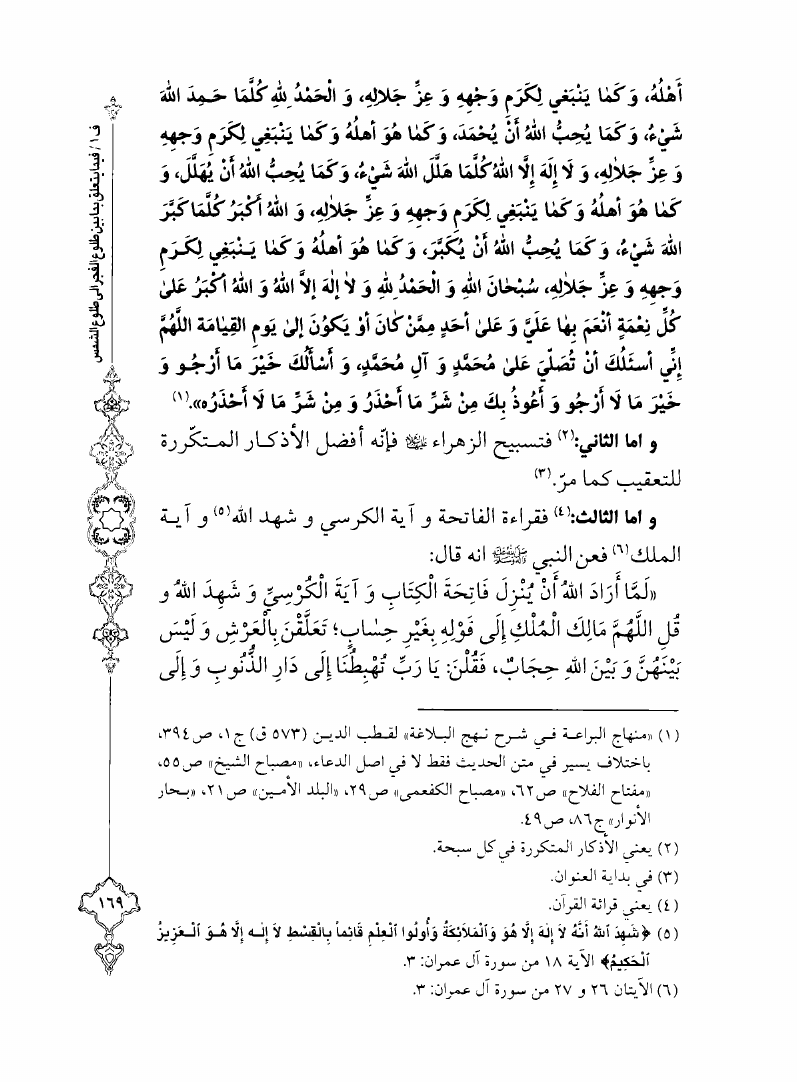 أَهْلُهُ، وَ كَمٰا يَنْبَغي لِكَرَمِ وَجْهِهِ وَ عِزِّ جَلالِهِ، وَ الْحَمْدُ لِلّهِ كُلَّمَا حَـمِدَ اللّهَ
شَيْءٌ، وَ كَمَا يُحِبُّ اللّهُ أَنْ يُحْمَدَ، وَ كَمَا هُوَ أهلُهُ وَ كَمَا يَنْبَغِي لِكَرَمِ وَجهِهِ
وَ عِزِّ جَلاٰلِهِ، وَ لَا إِلَهَ إِلَّا اللّهُ كُلَّمَا هَلَّلَ اللّهَ شَيْءٌ، وَ كَمَا يُحِبُّ اللّهُ أَنْ يُهَلَّلَ، وَ
كَمَا هُوَ أهلُهُ وَ كَمَا يَنْبَغِي لِكَرَمِ وَجهِهِ وَ عِزِّ جَلاٰلِهِ، وَ اللّهُ أَكْبَرُ كُلَّمَا كَبَّرَ
اللّهَ شَيْءٌ، وَ كَمَا يُحِبُّ اللّهُ أَنْ يُكَبَّرَ، وَ كَمَا هُوَ أهلُهُ وَ كَمَا يَـنْبَغِي لِكَـرَمِ
وَجهِهِ وَ عِزِّ جَلاٰلِهِ، سُبْحٰانَ اللّهِ وَ الْحَمْدُ لِلّهِ وَ لاٰ إِلٰهَ إِلاَّ اللّهُ وَ اللّهُ أكْبَرُ عَلىٰ
كُلِّ نِعْمَةٍ أَنْعَمَ بِهٰا عَلَيَّ وَ عَلىٰ أحَدٍ مِمَّنْ كَانَ أوْ يَكوُنَ إلىٰ يَومِ القِيٰامَةِ اللَّهُمَّ
إنِّي أسئَلُكَ أنْ تُصَلّيَ عَلىٰ مُحَمَّدٍ وَ آلِ مُحَمَّدٍ، وَ أَسْأَلُكَ خَيْرَ مَا أَرْجُـو وَ
خَيْرَ مَا لَا أَرْجو وَ أَعُوذُ بِكَ مِنْ شَرِّ مَا أَحْذَرُ وَ مِنْ شَرِّ مَا لَا أَحْذَرُه».(١)
و اما الثاني:(٢) فتسبيح الزهراء ﻋﻠﻴﻬﺎ ﺍﻟﺴﻼﻡ فإنّه أفضل الأذكـار المـتكّررة
للتعقيب كما مرّ.(٣)
و اما الثالث:(٤) فقراءة الفاتحة و آية الكرسي و شهد الله(٥) و آيـة
الملك(٦) فعن النبي ﷺ انه قال:
«لَمَّا أَرَادَ اللّهُ أَنْ يُنْزِلَ فَاتِحَةَ الْكِتَابِ وَ آيَةَ الْكُرْسِيِّ وَ شَهِدَ اللّهُ و
قُلِ اللَّهُمَّ مَالِكَ الْمُلْكِ إِلَى قَوْلِهِ بِغَيْرِ حِسٰابٍ؛ تَعَلَّقْنَ بِالْعَرْشِ وَ لَيْسَ
بَيْنَهُنَّ وَ بَيْنَ اللّهِ حِجَابٌ، فَقُلْنَ: يَا رَبِّ تُهْبِطُنَا إِلَى دَارِ الذُّنُوبِ وَ إِلَى
(١) «منهاج البراعـة فـي شـرح نـهج البـلاغة» لقـطب الديـن (٥٧٣ ق) ج١، ص٣٩٤،
باختلاف يسير في متن الحديث فقط لا في اصل الدعاء، «مصباح الشيخ» ص٥٥،
«مفتاح الفلاح» ص٦٢، «مصباح الكفعمى» ص٢٩، «البلد الأمـين» ص٢١، «بـحار
الأنوار» ج٨٦، ص٤٩.
(٢) يعني الأذكار المتكررة في كل سبحة.
(٣) في بداية العنوان.
(٤) يعني قرائة القرآن.
(٥) ﴿شَهِدَ اللهُ أَنَّهُ لاَ إِلَهَ إِلَّا هُوَ وَالْمَلاَئِكَةُ وَأُولُوا الْعِلْمِ قَائِماً بِالْقِسْطِ لاَ إِلَـٰهَ إِلَّا هُـوَ الْـعَزِيزُ
الْحَكِيمُ﴾ الآية ١٨ من سورة آل عمران: ٣.
(٦) الآيتان ٢٦ و ٢٧ من سورة آل عمران: ٣.
ف ١ / فيما يتعلق بما بين طلوع الفجر الى طلوع الشمس
١٦٩